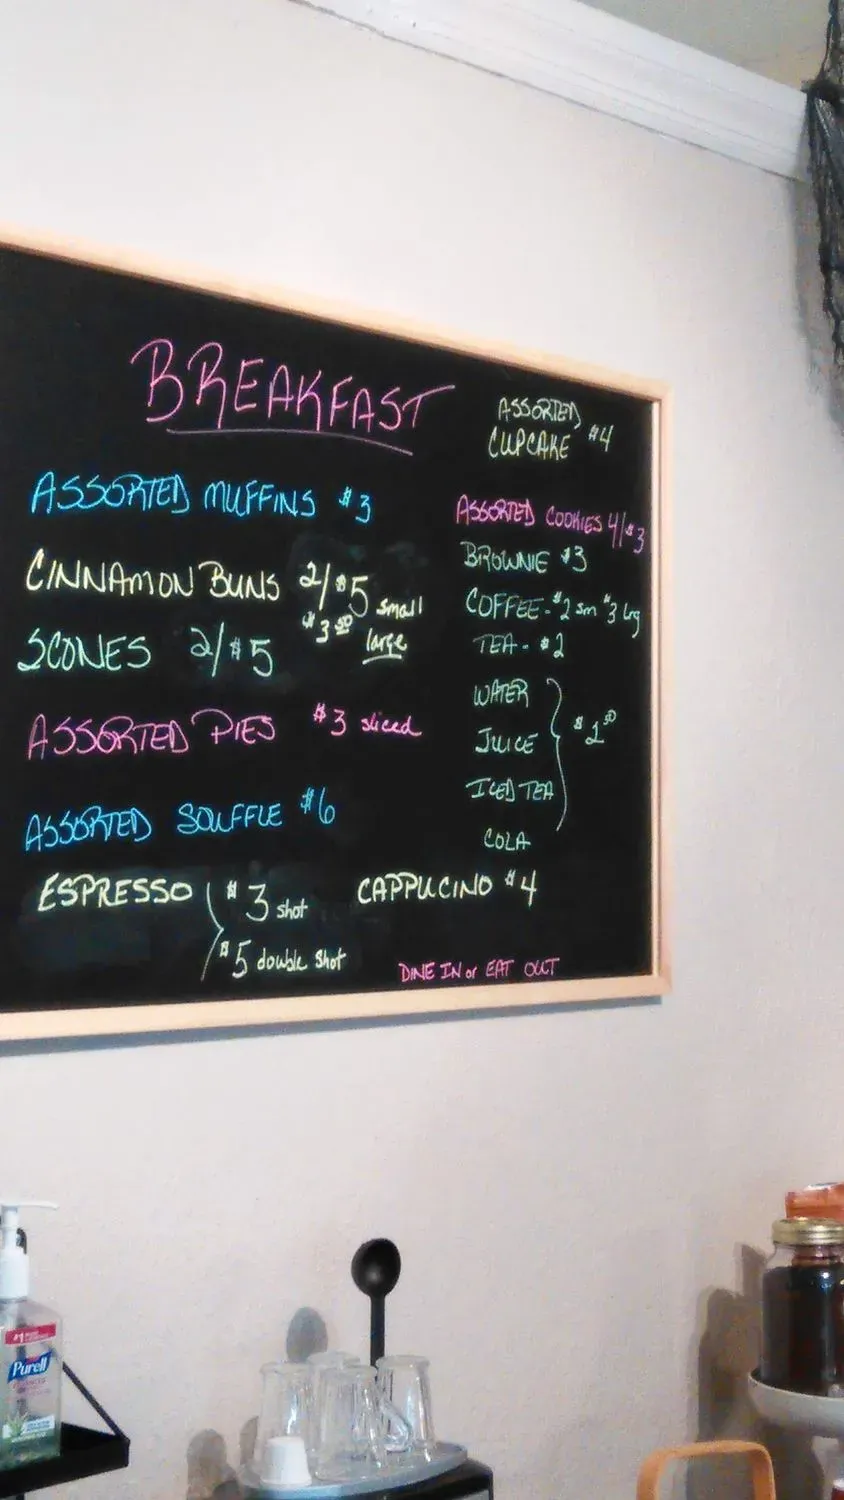 BREAKFAST
ASSORTED MUFFINS $3
CINNAMON BUNS 2/$5 small
$3 50 large
SCONES 2/$5
ASSORTED PIES $3 sliced
ASSORTED SOUFFLE $6
ESPRESSO $3 shot
$5 double shot
CAPPUCINO $4
ASSORTED
CUPCAKE $4
ASSORTED COOKIES 4/$3
BROWNIE $3
COFFEE - $2 sm $3 lrg
TEA - $2
WATER
JUICE $1 50
ICED TEA
COLA
DINE IN or EAT OUT
#1
Purell